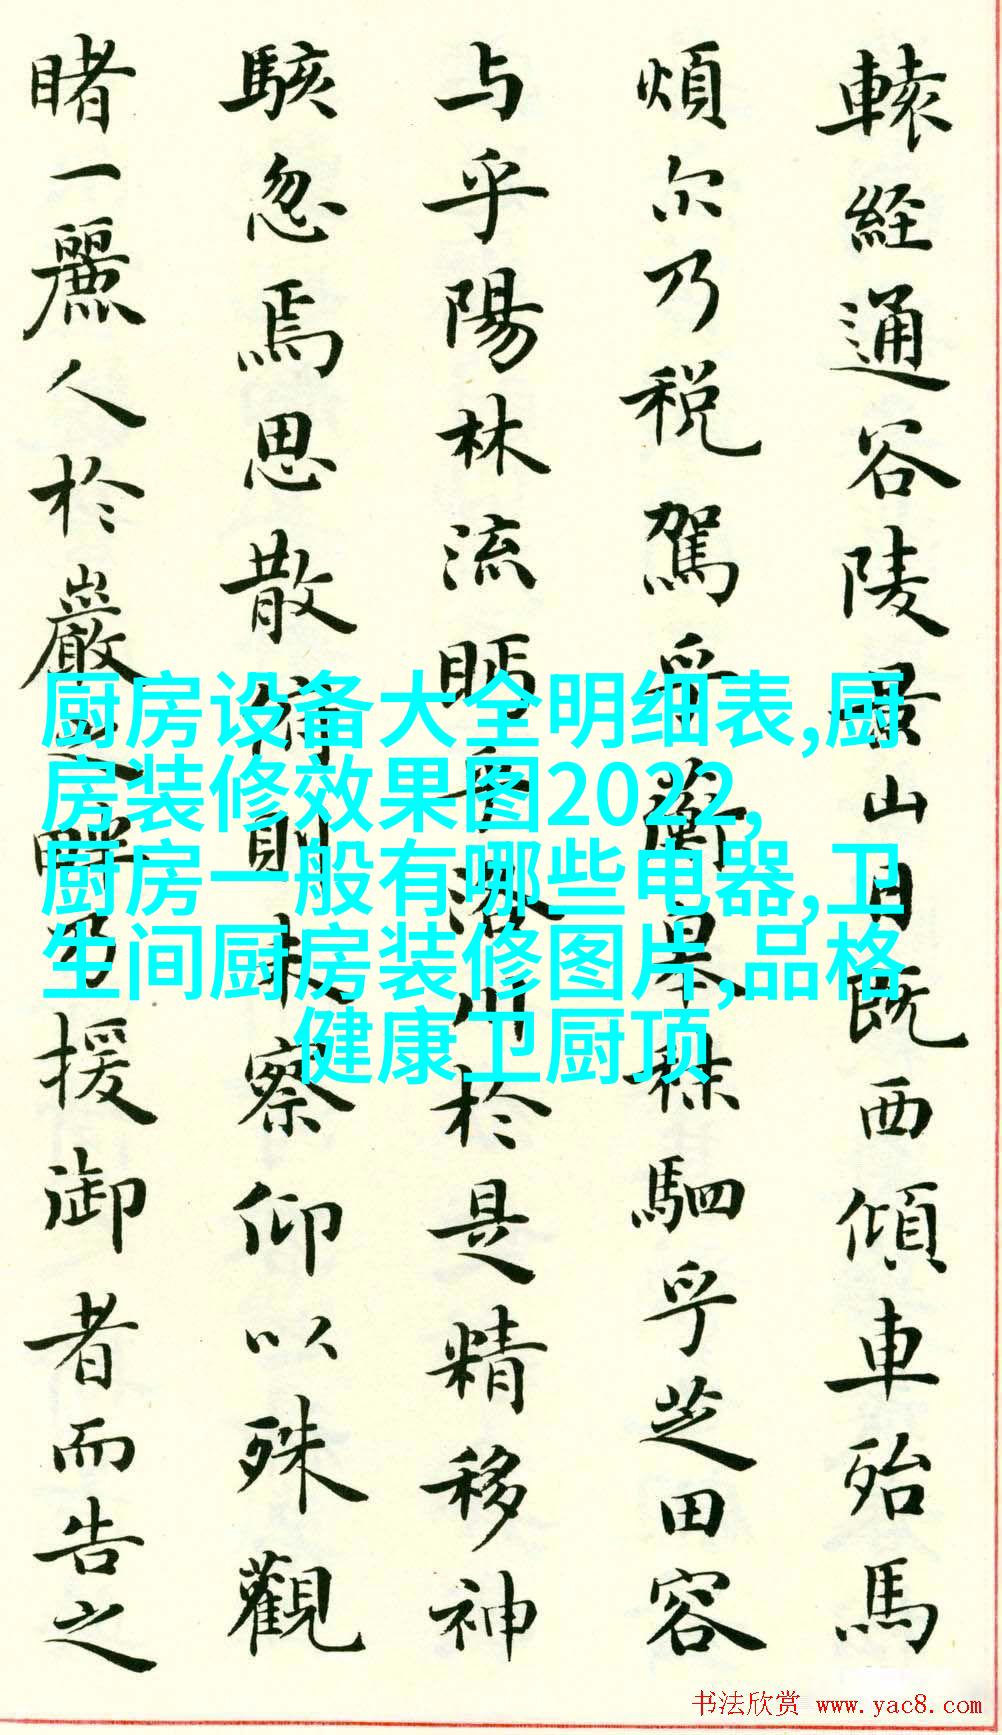 轅経通谷陵景山日既西傾車殆馬
煩尔乃税駕乎蘅皋秣駟乎芝田容
与乎陽林流眄乎洛川於是精移神
駭忽焉思散俯則未察仰以殊觀
睹一麗人於巖之畔乃援御者而告之
厨房设备大全明细表,厨
房装修效果图2022,
厨房一般有哪些电器,卫
生间厨房装修图片,品格
健康卫厨顶
书法欣赏 www.yac8.com